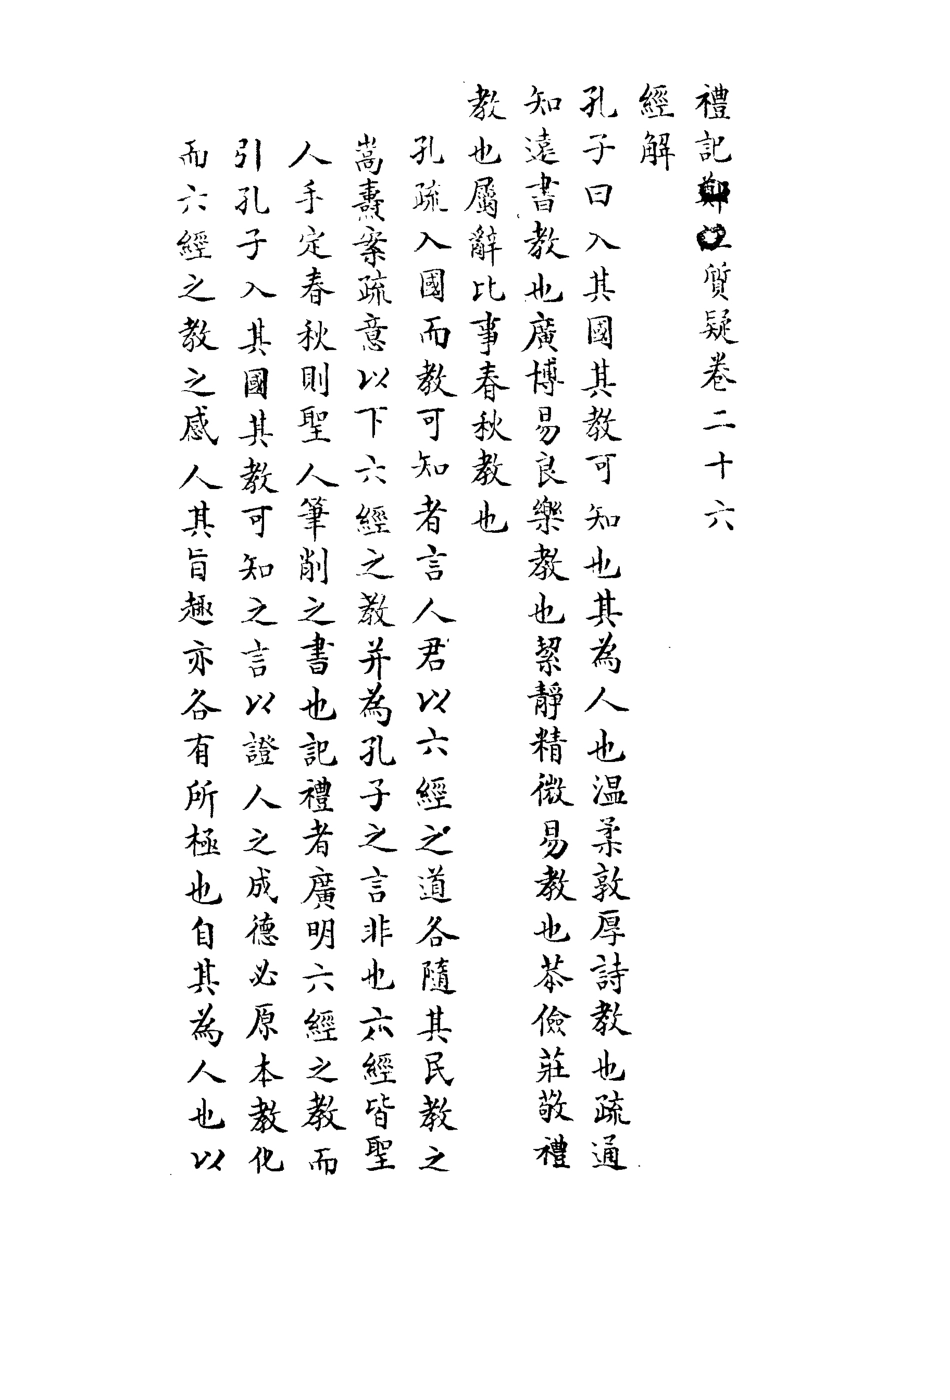 禮記質疑卷二十六
經解
孔子曰入其國其教可知也其為人也温柔敦厚詩教也疏通
知遠書教也廣博易良樂教也絜靜精微易教也恭儉莊敬禮
教也屬辭比事春秋教也
孔疏入國而教可知者言人君以六經之道各隨其民教之
嵩燾案疏意以下六經之教并為孔子之言非也六經皆聖
人手定春秋則聖人筆削之書也記禮者廣明六經之教而
引孔子入其國其教可知之言以證人之成德必原本教化
而六經之教之感人其旨趣亦各有所極也自其為人也以